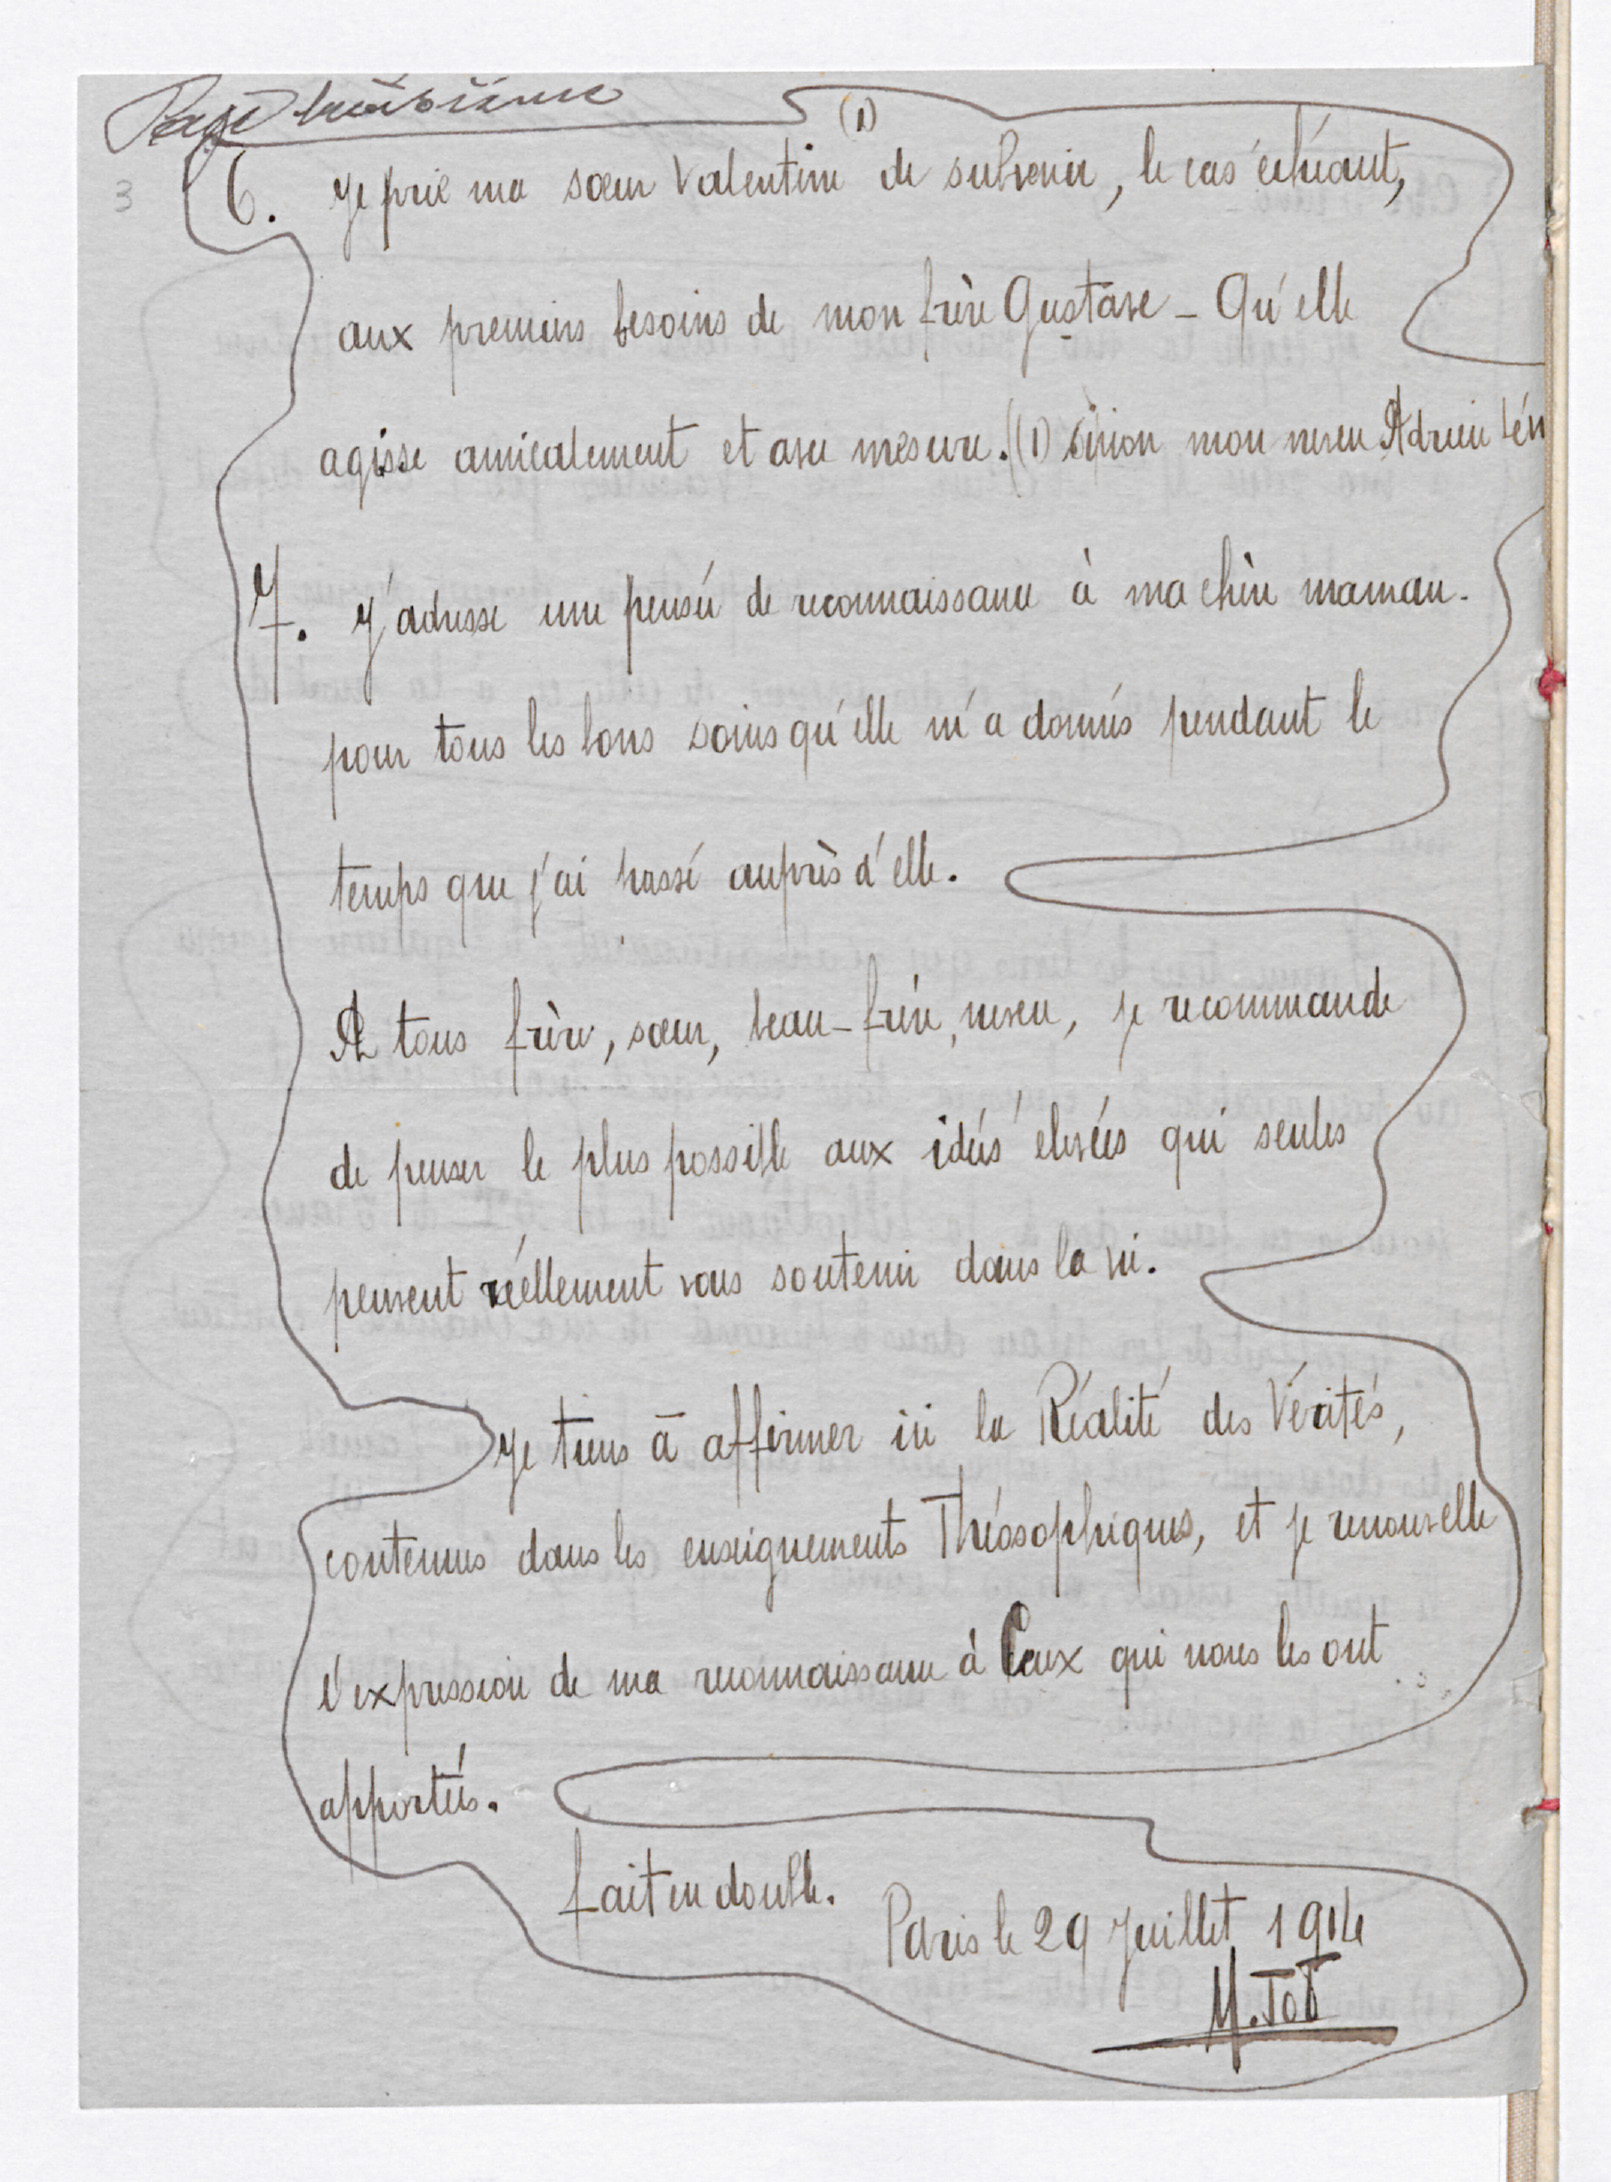 Page troisième
3
(1)
6. Je prie ma sœur Valentine de subvenir, le cas échéant,
aux premiers besoins de mon frère Gustave - Qu'elle
agisse amicalement et avec mesure. (1) sinon mon neveu Adrien
7. J'adresse une pensée de reconnaissance à ma chère maman
pour tous les bons soins qu'elle m'a donnés pendant le
temps que j'ai passé auprès d'elle.
A tous frère, sœur, beau-frère, neveu, je recommande
de penser le plus possible aux idées élevées qui seules
peuvent réellement vous soutenir dans la vie.
Je tiens à affirmer ici la Réalité des Vérités,
contenues dans les enseignements Théosophiques, et je renouvelle
l'expression de ma reconnaissance à Ceux qui nous les ont
apportés.
fait en double.
Paris le 29 Juillet 1914
M. Tot